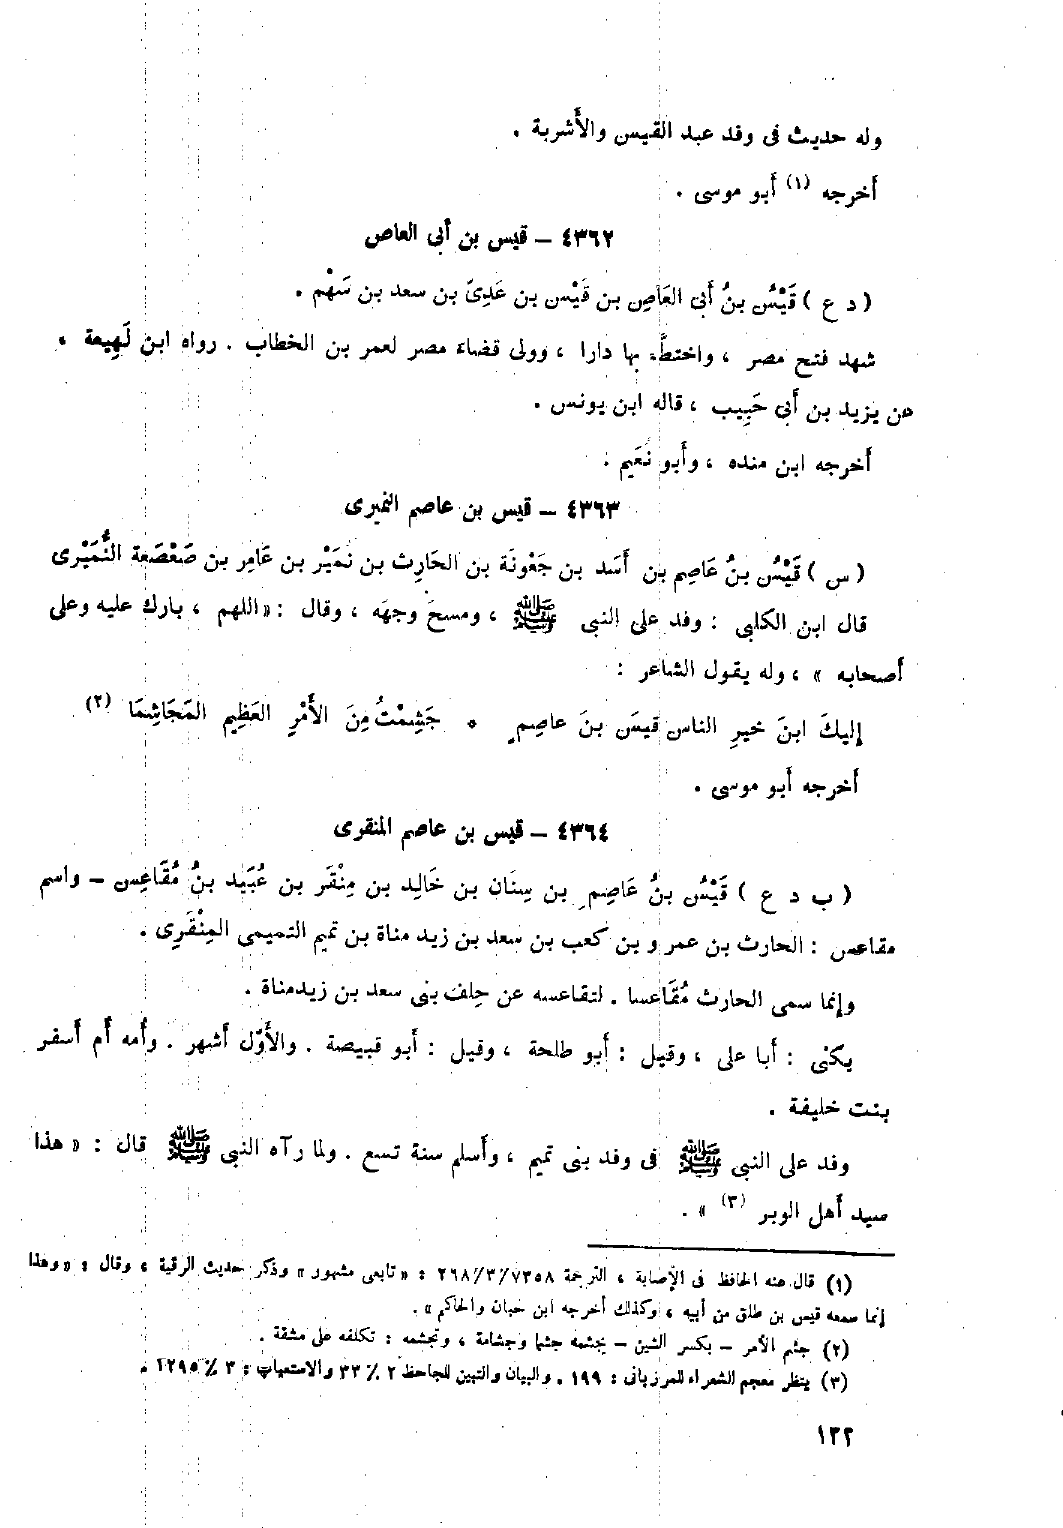 وله حديث فى وفد عبد القيس والأَشربة .
أَخرجه (١) أَبو موسى .
٤٣٦٢ – قيس بن أبى العاص
( د ع ) قَيْسُ بنُ أَبى العَاصِ بن قَيْس بن عَدِىّ بن سعد بن سَهْم .
شهد فتح مصر ، واختطَّ بها دارا ، وولى قضاء مصر لعمر بن الخطاب . رواه ابن لَهِيعة ،
عن يزيد بن أَبى حَبِيب ، قاله ابن يونس .
أَخرجه ابن منده ، وأَبو نُعَيم .
٤٣٦٣ – قيس بن عاصم النميرى
( س ) قَيْسُ بنُ عَاصِم بن أَسَد بن جَعْونَة بن الحَارِث بن نمَيْر بن عَامِر بن صَعْصَعة النُّمَيْرى
قال ابن الكلبى : وفد على النبى ﷺ ، ومسحَ وجهَه ، وقال : « اللهم ، بارك عليه وعلى
أَصحابه » ، وله يقول الشاعر :
إِليكَ ابنَ خيرِ الناس قيسَ بنَ عاصِمٍ * جَشِمْتُ مِنَ الأَمْرِ العَظِيم المَجَاشِمَا (٢)
أَخرجه أَبو موسى .
٤٣٦٤ – قيس بن عاصم المنقرى
( ب د ع ) قَيْسُ بنُ عَاصِم بن سِنَان بن خَالِد بن مِنْقَر بن عُبَيد بنُ مُقَاعِس – واسم
مقاعس : الحارث بن عمرو بن كعب بن سعد بن زيد مناة بن تميم التميمى المِنْقَرِى .
وإِنما سمى الحارث مُقَاعسا . لتقاعسه عن حِلف بنى سعد بن زيدمناة .
يكنى : أَبا على ، وقيل : أَبو طلحة ، وقيل : أَبو قبيصة . والأَوّل أَشهر . وأُمه أُم أَسفر
بنت خليفة .
وفد على النبى ﷺ فى وفد بنى تميم ، وأَسلم سنة تسع . ولما رآه النبى ﷺ قال : « هذا
سيد أَهل الوبر (٣) » .
(١) قال عنه الحافظ فى الإصابة ، الترجمة ٢٦٨/٣/٧٣٥٨ : « تابعى مشهور » وذكر حديث الرقية ، وقال : « وهذا
إنما سمعه قيس بن طلق من أبيه ، وكذلك أخرجه ابن حبان والحاكم » .
(٢) جشم الأمر – بكسر الشين – يجشمه جشما وجشامة ، وتجشمه : تكلفه على مشقة .
(٣) ينظر معجم الشعراء للمرزبانى : ١٩٩ . والبيان والتبين للجاحظ ٢ / ٣٣ والاستيعاب : ٣ / ١٢٩٥ .
١٣٢